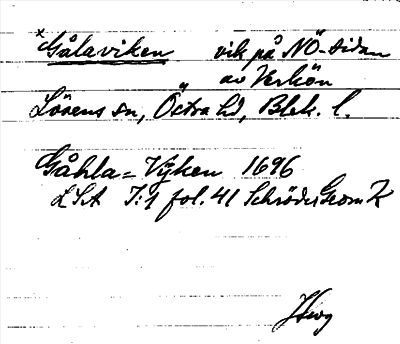 × Gålaviken vik på NÖ-sidan
av Verkön
Lösens sn, Östra hd, Blek. l.
Gåhla=Vijken 1696
LSA I:1 fol. 41 Schröder Geom K